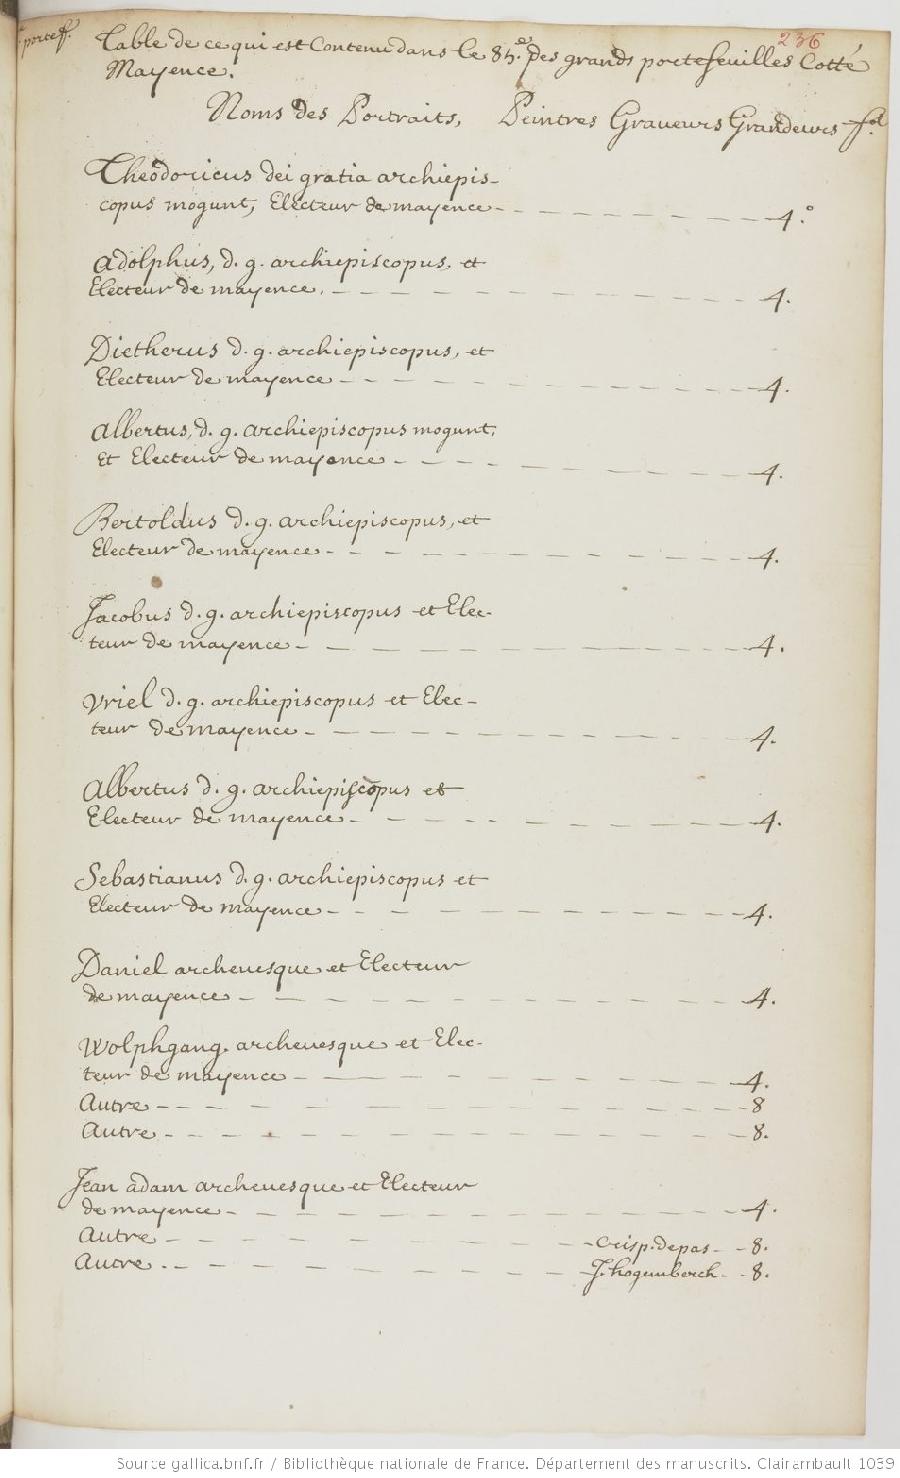 portef.
236
Table de ce qui est Contenu dans le 85.e des grands portefeuilles Cotté
Mayence.
Noms des Portraits, Peintres Graveurs Grandeurs fol.
Theodoricus dei gratia archiepis-
copus mogunt, Electeur de mayence - - - - - - - - - 4.°
Adolphus, d. g. archiepiscopus, et
Electeur de mayence. - - - - - - - - - 4.
Dietherus d. g. archiepiscopus, et
Electeur de mayence - - - - - - - - - 4.
Albertus, d. g. archiepiscopus mogunt,
et Electeur de mayence - - - - - - - - - 4.
Bertoldus d. g. archiepiscopus, et
Electeur de mayence - - - - - - - - - 4.
Jacobus d. g. archiepiscopus et Elec-
teur de mayence - - - - - - - - - 4.
Vriel d. g. archiepiscopus et Elec-
teur de mayence - - - - - - - - - 4.
Albertus d. g. archiepiscopus et
Electeur de mayence - - - - - - - - - 4.
Sebastianus d. g. archiepiscopus et
Electeur de mayence - - - - - - - - - 4.
Daniel archeuesque et Electeur
de mayence - - - - - - - - - 4.
Wolphgang archeuesque et Elec-
teur de mayence - - - - - - - - - 4.
Autre - - - - - - - - - 8
Autre - - - - - - - - - 8.
Jean adam archeuesque et Electeur
de mayence - - - - - - - - - 4.
Autre - - - - - - - - - Crisp. de pas - - 8.
Autre - - - - - - - - - J. hogunberch - - 8.
Source gallica.bnf.fr / Bibliothèque nationale de France. Département des manuscrits. Clairambault 1039